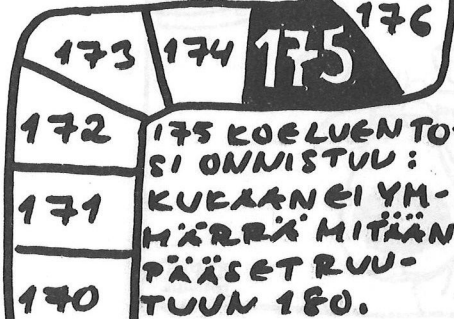 173 174 175 176
172
171
170
175 KOELUENTO-
SI ONNISTUU:
KUKAAN EI YM-
MÄRRÄ MITÄÄN
PÄÄSET RUU-
TUUN 180.